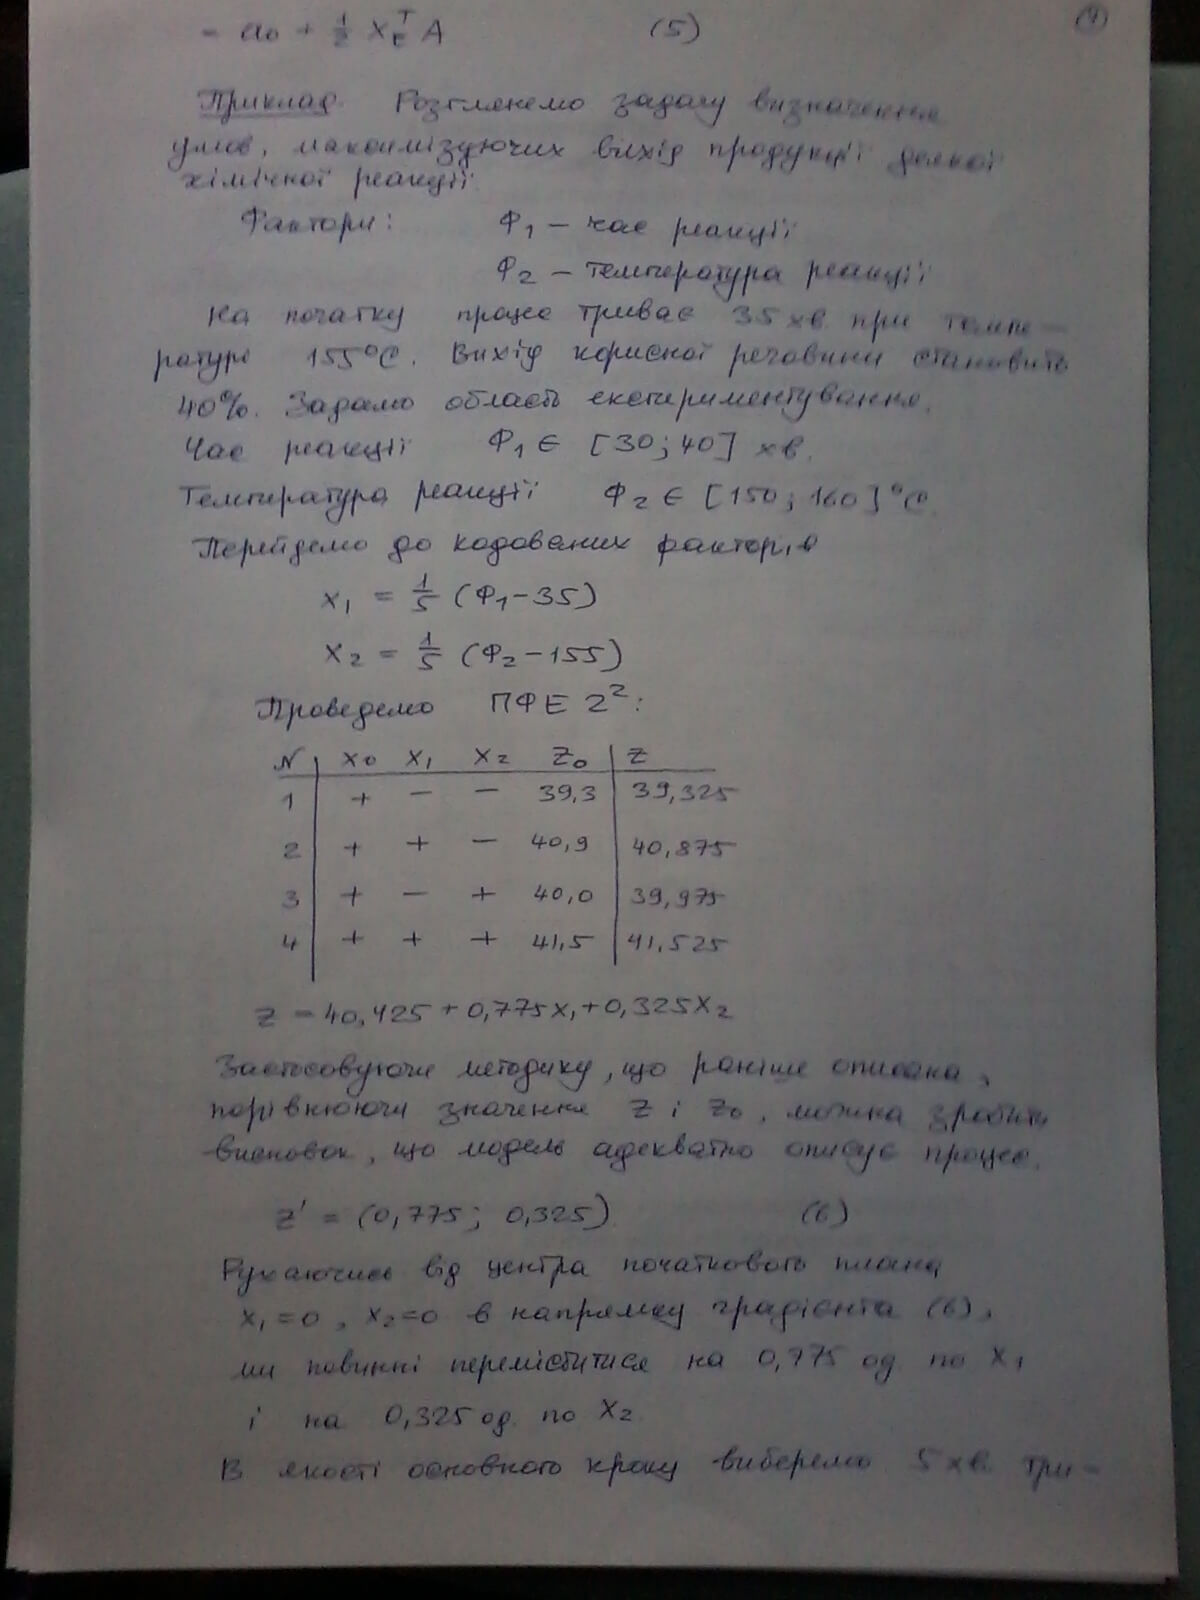 = a₀ + 1/2 X_E^T A (5)
Приклад. Розглянемо задачу визначення
умов, максимізуючих вихід продукції деякої
хімічної реакції.
Фактори: Ф₁ – час реакції
Ф₂ – температура реакції
На початку процес триває 35 хв. при темпе-
ратурі 155°С. Вихід корисної речовини становить
40%. Задамо область експериментування.
Час реакції Ф₁ ∈ [30; 40] хв.
Температура реакції Ф₂ ∈ [150; 160]°С.
Перейдемо до кодованих факторів
x₁ = 1/5 (Ф₁–35)
x₂ = 1/5 (Ф₂–155)
Проведемо ПФЕ 2²:
N x₀ x₁ x₂ z₀ z
1 + – – 39,3 39,325
2 + + – 40,9 40,875
3 + – + 40,0 39,975
4 + + + 41,5 41,525
z = 40,425 + 0,775x₁ + 0,325x₂
Застосовуючи методику, що раніше описана,
порівнюючи значення z і z₀, можна зробити
висновок, що модель адекватно описує процес.
z' = (0,775; 0,325). (6)
Рухаючись від центра початкового плана
x₁=0, x₂=0 в напрямку градієнта (6),
ми повинні переміститися на 0,775 од. по x₁
і на 0,325 од. по x₂
В якості основного кроку виберемо 5 хв. три-